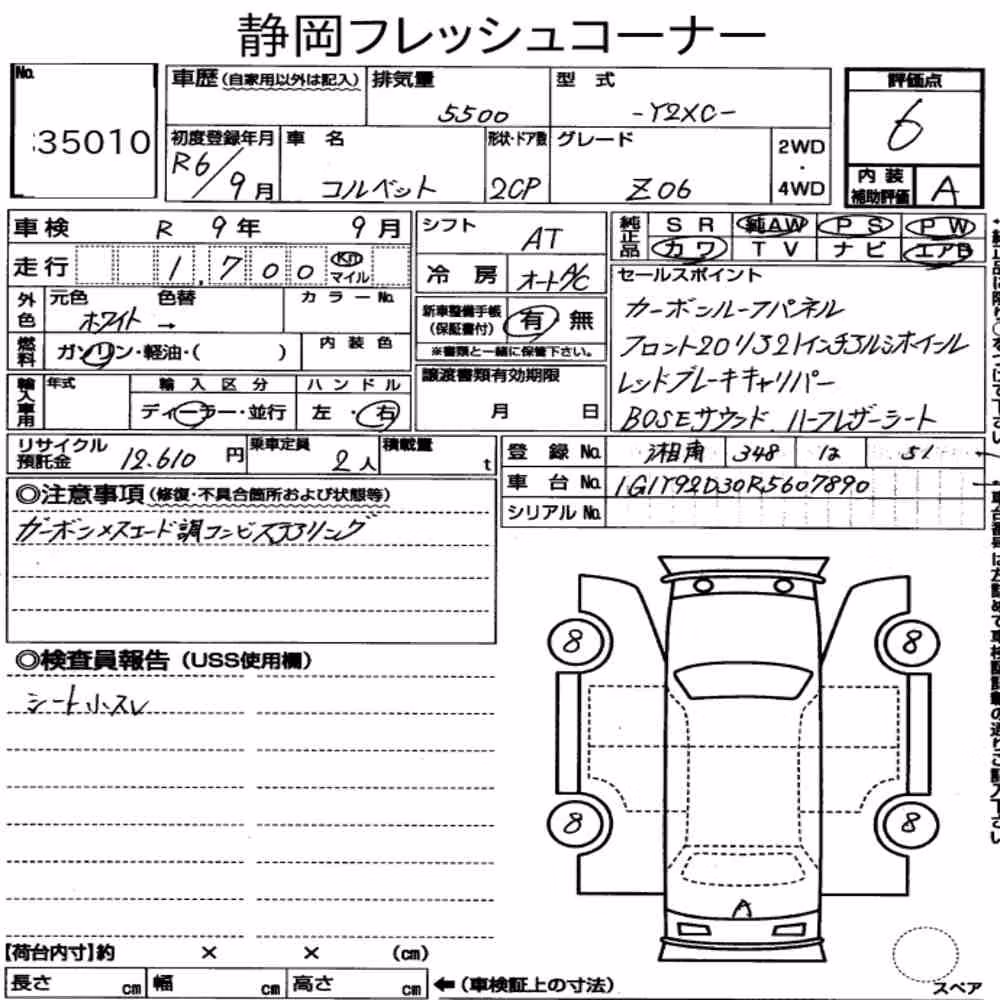 静岡フレッシュコーナー
No. 35010
車歴(自家用以外は記入) 排気量 5500 型式 -Y2XC- 評価点 6
初度登録年月 R6/9月 車名 コルベット 形状・ドア数 2CP グレード Z06 2WD・4WD 内装補助評価 A
車検 R 9年 9月 シフト AT 純正品 SR 純AW PS PW
走行 1,700 Km マイル 冷房 オートA/C カワ TV ナビ エアB
外色 元色 ホワイト → 色替 カラーNo. 新車整備手帳(保証書付) 有 無 セールスポイント
燃料 ガソリン・軽油・( ) 内装色 ※書類と一緒に保管下さい。
カーボンルーフパネル
フロント20リヤ21インチアルミホイール
レッドブレーキキャリパー
BOSEサウンド、ハーフレザーシート
輸入車用 年式 輸入区分 ディーラー・並行 ハンドル 左・右 譲渡書類有効期限 月 日
リサイクル預託金 12.610円 乗車定員 2人 積載量 t 登録No. 湘南 348 は 51
車台No. 1G1Y92D30R5607890
シリアルNo.
◎注意事項(修復・不具合箇所および状態等)
カーボンxスエード調コンビステアリング
◎検査員報告(USS使用欄)
シート小スレ
8 8
8 8
A
【荷台内寸】約 × × (cm)
長さ cm 幅 cm 高さ cm ←(車検証上の寸法)
スペア